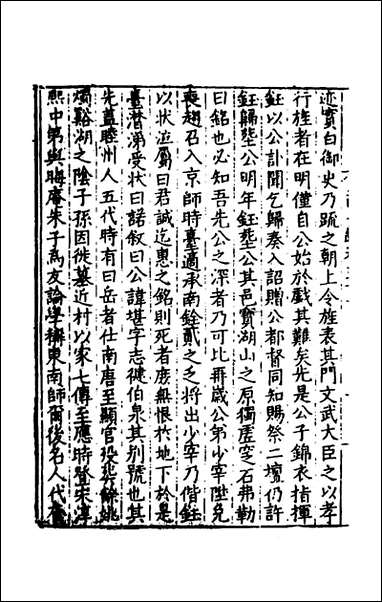 迹實白御史乃疏之朝上令旌表其門文武大臣之以孝
行旌者在明僅自公始於戲其難矣先是公子錦衣指揮
鈺以公訃聞乞歸奏入詔贈公都督同知賜祭二壇仍許
鈺歸塟公明年鈺塟公其邑寶湖山之原獨虛空石弗勒
曰銘也必知吾先公之深者乃可比再歲公第少宰陞免
喪趨召入京師時臺適承南銓貳之乏將出少宰乃偕鈺
以狀泣屬曰若誠迄惠之銘則死者庶無恨於地下於是
臺潸涕受狀曰諾敘曰公諱堪字志健伯泉其別號也其
先蓋睦州人五代時有曰岳者仕南唐至顯官後葬餘姚
燭谿湖之陰子孫因徙墓近村以家七傳至應時登宋淳
熙中第與晦庵朱子為友論學稱東南師爾後名人代有